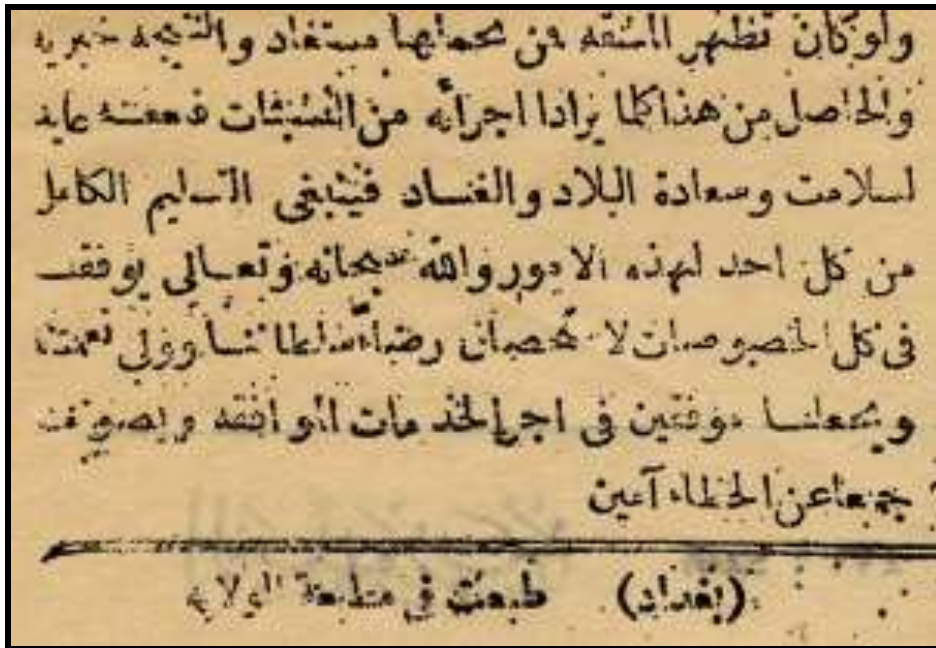 ولو كان تظهر المشقه من محملها مستفاد والنتيجه خيريه
والحاصل من هذا كلما يرادا اجرائه من التشبثات فمعتــه عايد
لسلامت وسعادة البلاد والعبــاد فينبغى التسليم الكامل
من كل احد لهذه الامور والله سبحانه وتعــالى يوفقنــا
فى كل الخصوصات لا رضاء سلطاننــا وولى نعمتنا
ويجعلنــا موفقين فى اجرا الخدمات الموافقه ويصوننــا
جميعا عن الخطاء آمين
(بغداد) طبعت في مطبعة الولايه